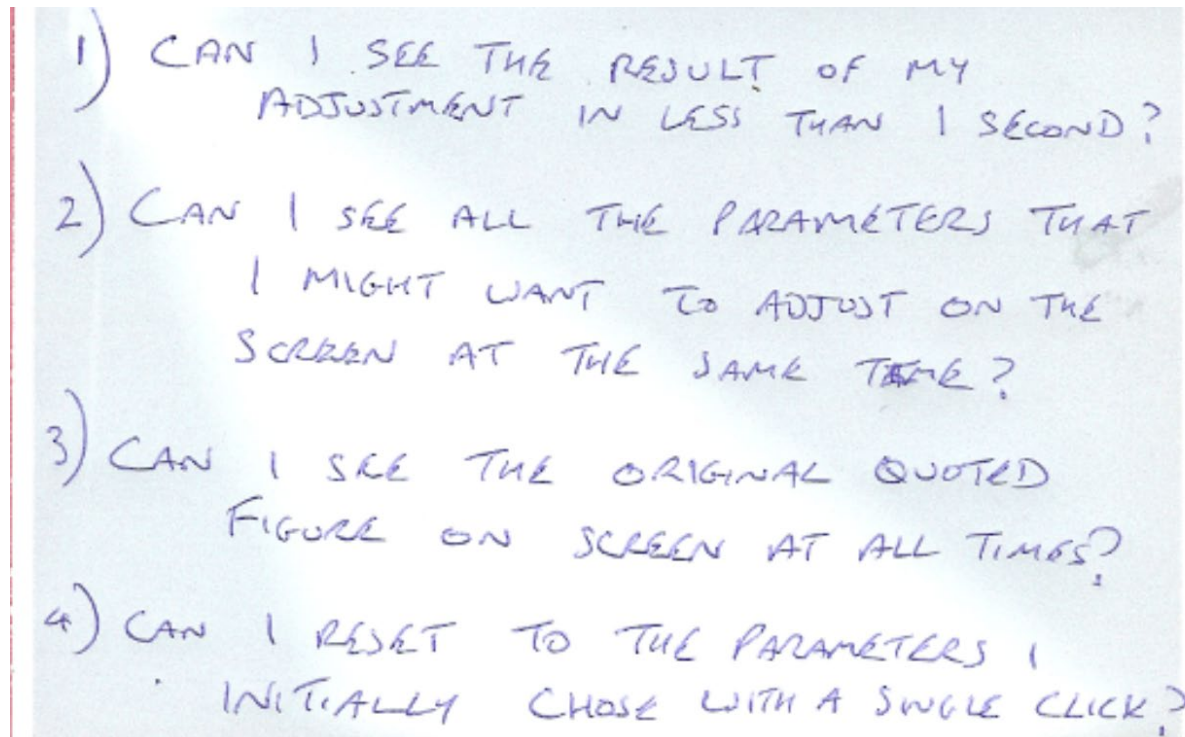 1) CAN I SEE THE RESULT OF MY
ADJUSTMENT IN LESS THAN 1 SECOND?
2) CAN I SEE ALL THE PARAMETERS THAT
I MIGHT WANT TO ADJUST ON THE
SCREEN AT THE SAME TIME?
3) CAN I SEE THE ORIGINAL QUOTED
FIGURE ON SCREEN AT ALL TIMES?
4) CAN I RESET TO THE PARAMETERS I
INITIALLY CHOSE WITH A SINGLE CLICK?